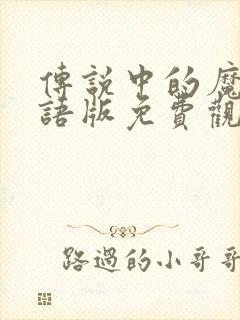 傳說中的魔
語版免費觀
路過的小哥哥